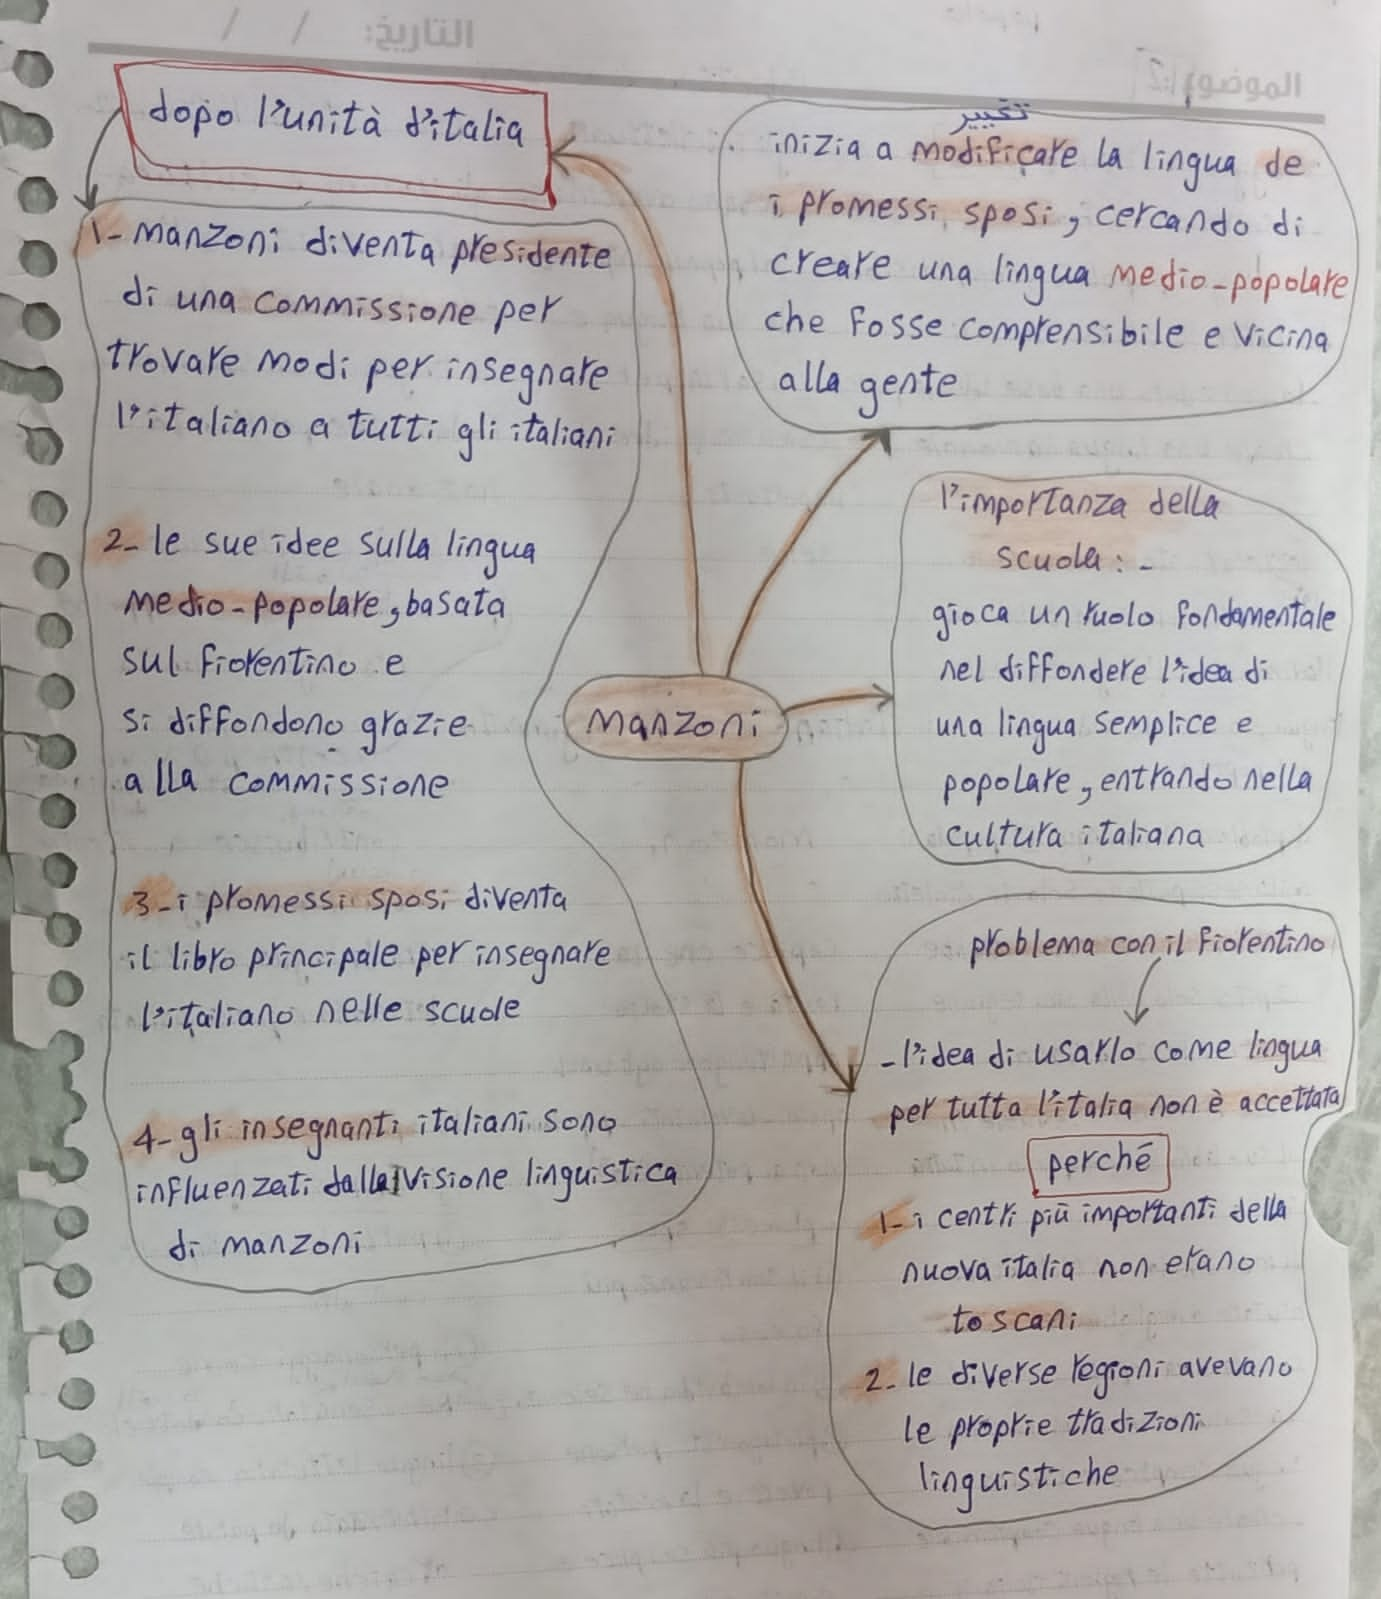 التاريخ: / /
الموضوع
dopo l'unità d'italia
1- Manzoni diventa presidente
di una commissione per
trovare modi per insegnare
l'italiano a tutti gli italiani
2- le sue idee sulla lingua
medio-popolare, basata
sul fiorentino e
si diffondono grazie
alla commissione
3- i promessi sposi diventa
il libro principale per insegnare
l'italiano nelle scuole
4- gli insegnanti italiani sono
influenzati dalla visione linguistica
di manzoni
manzoni
تغيير
inizia a modificare la lingua de
i promessi sposi, cercando di
creare una lingua medio-popolare
che fosse comprensibile e vicina
alla gente
l'importanza della
scuola: -
gioca un ruolo fondamentale
nel diffondere l'idea di
una lingua semplice e
popolare, entrando nella
cultura italiana
problema con il fiorentino
- l'idea di usarlo come lingua
per tutta l'italia non è accettata
perché
1- i centri più importanti della
nuova italia non erano
toscani
2- le diverse regioni avevano
le proprie tradizioni
linguistiche